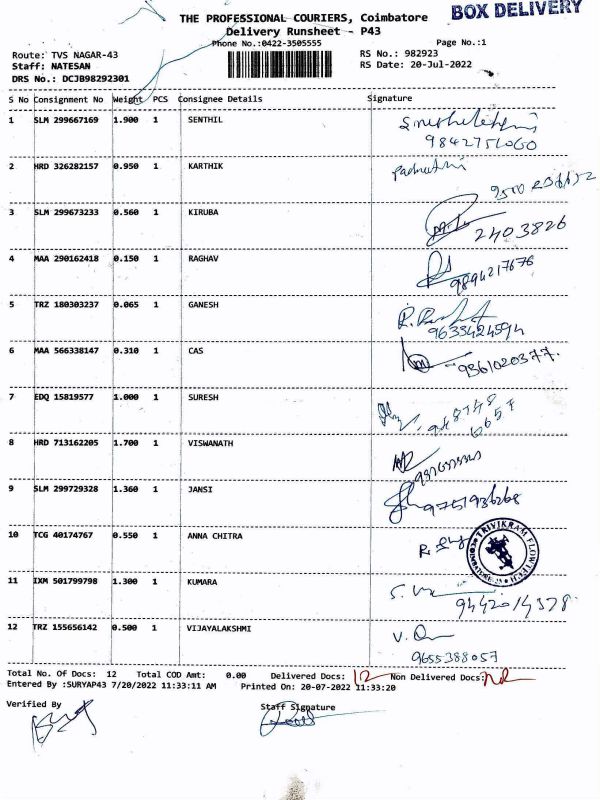 BOX DELIVERY
THE PROFESSIONAL COURIERS, Coimbatore
Delivery Runsheet - P43
Phone No.:0422-3505555
Page No.:1
Route: TVS NAGAR-43
RS No.: 982923
Staff: NATESAN
RS Date: 20-Jul-2022
DRS No.: DCJB98292301
S No Consignment No Weight PCS Consignee Details Signature
1 SLM 299667169 1.900 1 SENTHIL
9842751060
2 HRD 326282157 0.950 1 KARTHIK
3 SLM 299673233 0.560 1 KIRUBA
2403826
4 MAA 290162418 0.150 1 RAGHAV
9894217676
5 TRZ 180303237 0.065 1 GANESH
9633424594
6 MAA 566338147 0.310 1 CAS
9361020377.
7 EDQ 15819577 1.000 1 SURESH
8 HRD 713162205 1.700 1 VISWANATH
9 SLM 299729328 1.360 1 JANSI
9751936268
10 TCG 40174767 0.550 1 ANNA CHITRA
11 IXM 501799798 1.300 1 KUMARA
9442014378.
12 TRZ 155656142 0.500 1 VIJAYALAKSHMI
9655388057
Total No. Of Docs: 12 Total COD Amt: 0.00 Delivered Docs: 12 Non Delivered Docs:
Entered By :SURYAP43 7/20/2022 11:33:11 AM Printed On: 20-07-2022 11:33:20
Verified By Staff Signature